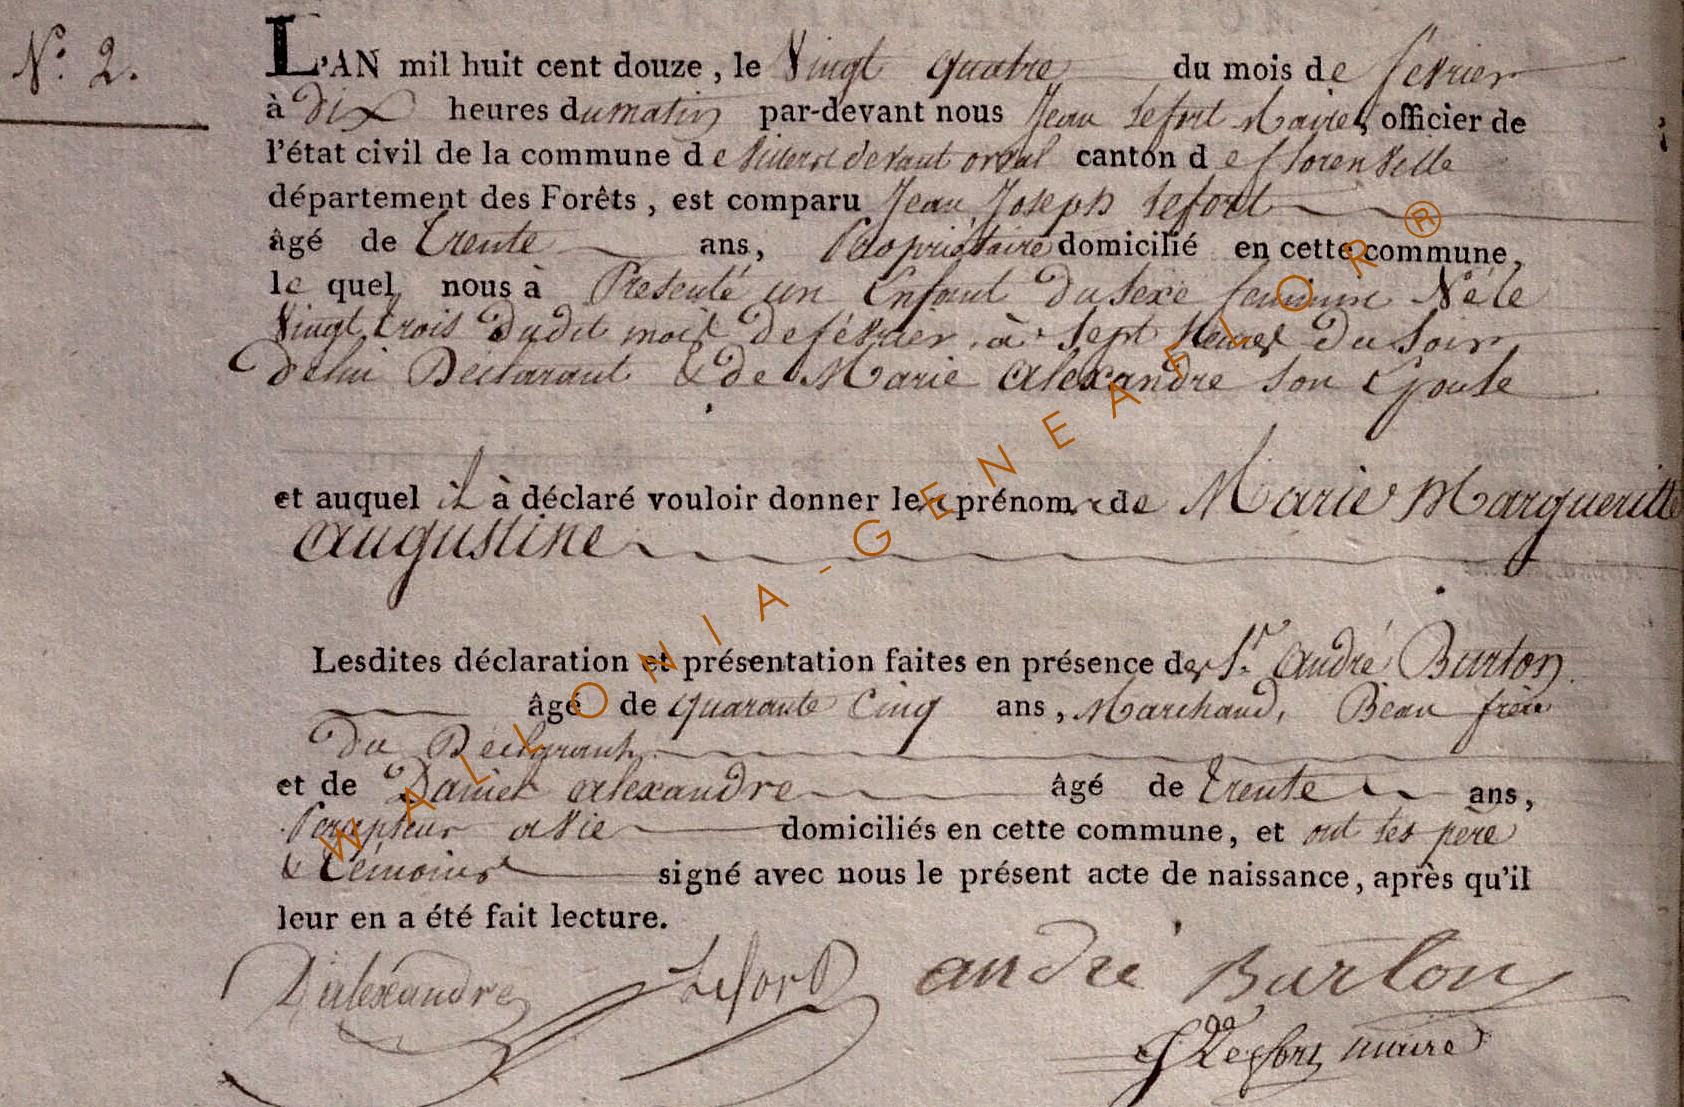 N.° 2.
L'AN mil huit cent douze, le Vingt quatre du mois de fevrier
à dix heures du matin par-devant nous Jean Lefort Maire, officier de
l'état civil de la commune de Villers devant orval canton de florenville
département des Forêts, est comparu Jean Joseph Lefort
âgé de trente ans, Propriétaire domicilié en cette commune,
lequel nous à Presenté un Enfant du sexe feminin Né le
Vingt trois dudit mois de février à sept heures du soir
De lui Déclarant & de Marie Alexandre son Epouse
et auquel il à déclaré vouloir donner les prénoms de Marie Margueritte
augustine
Lesdites déclaration et présentation faites en présence de Sr. andré Burton
âgé de quarante cinq ans, Marchand, Beau frère
Du Déclarant
et de Daniel alexandre âgé de trente ans,
Percepteur a vie domiciliés en cette commune, et ont les père
& témoins signé avec nous le présent acte de naissance, après qu'il
leur en a été fait lecture.
D alexandre Lefort andré Burton
J Lefort maire
WALLONIA-GENEAFLOR®